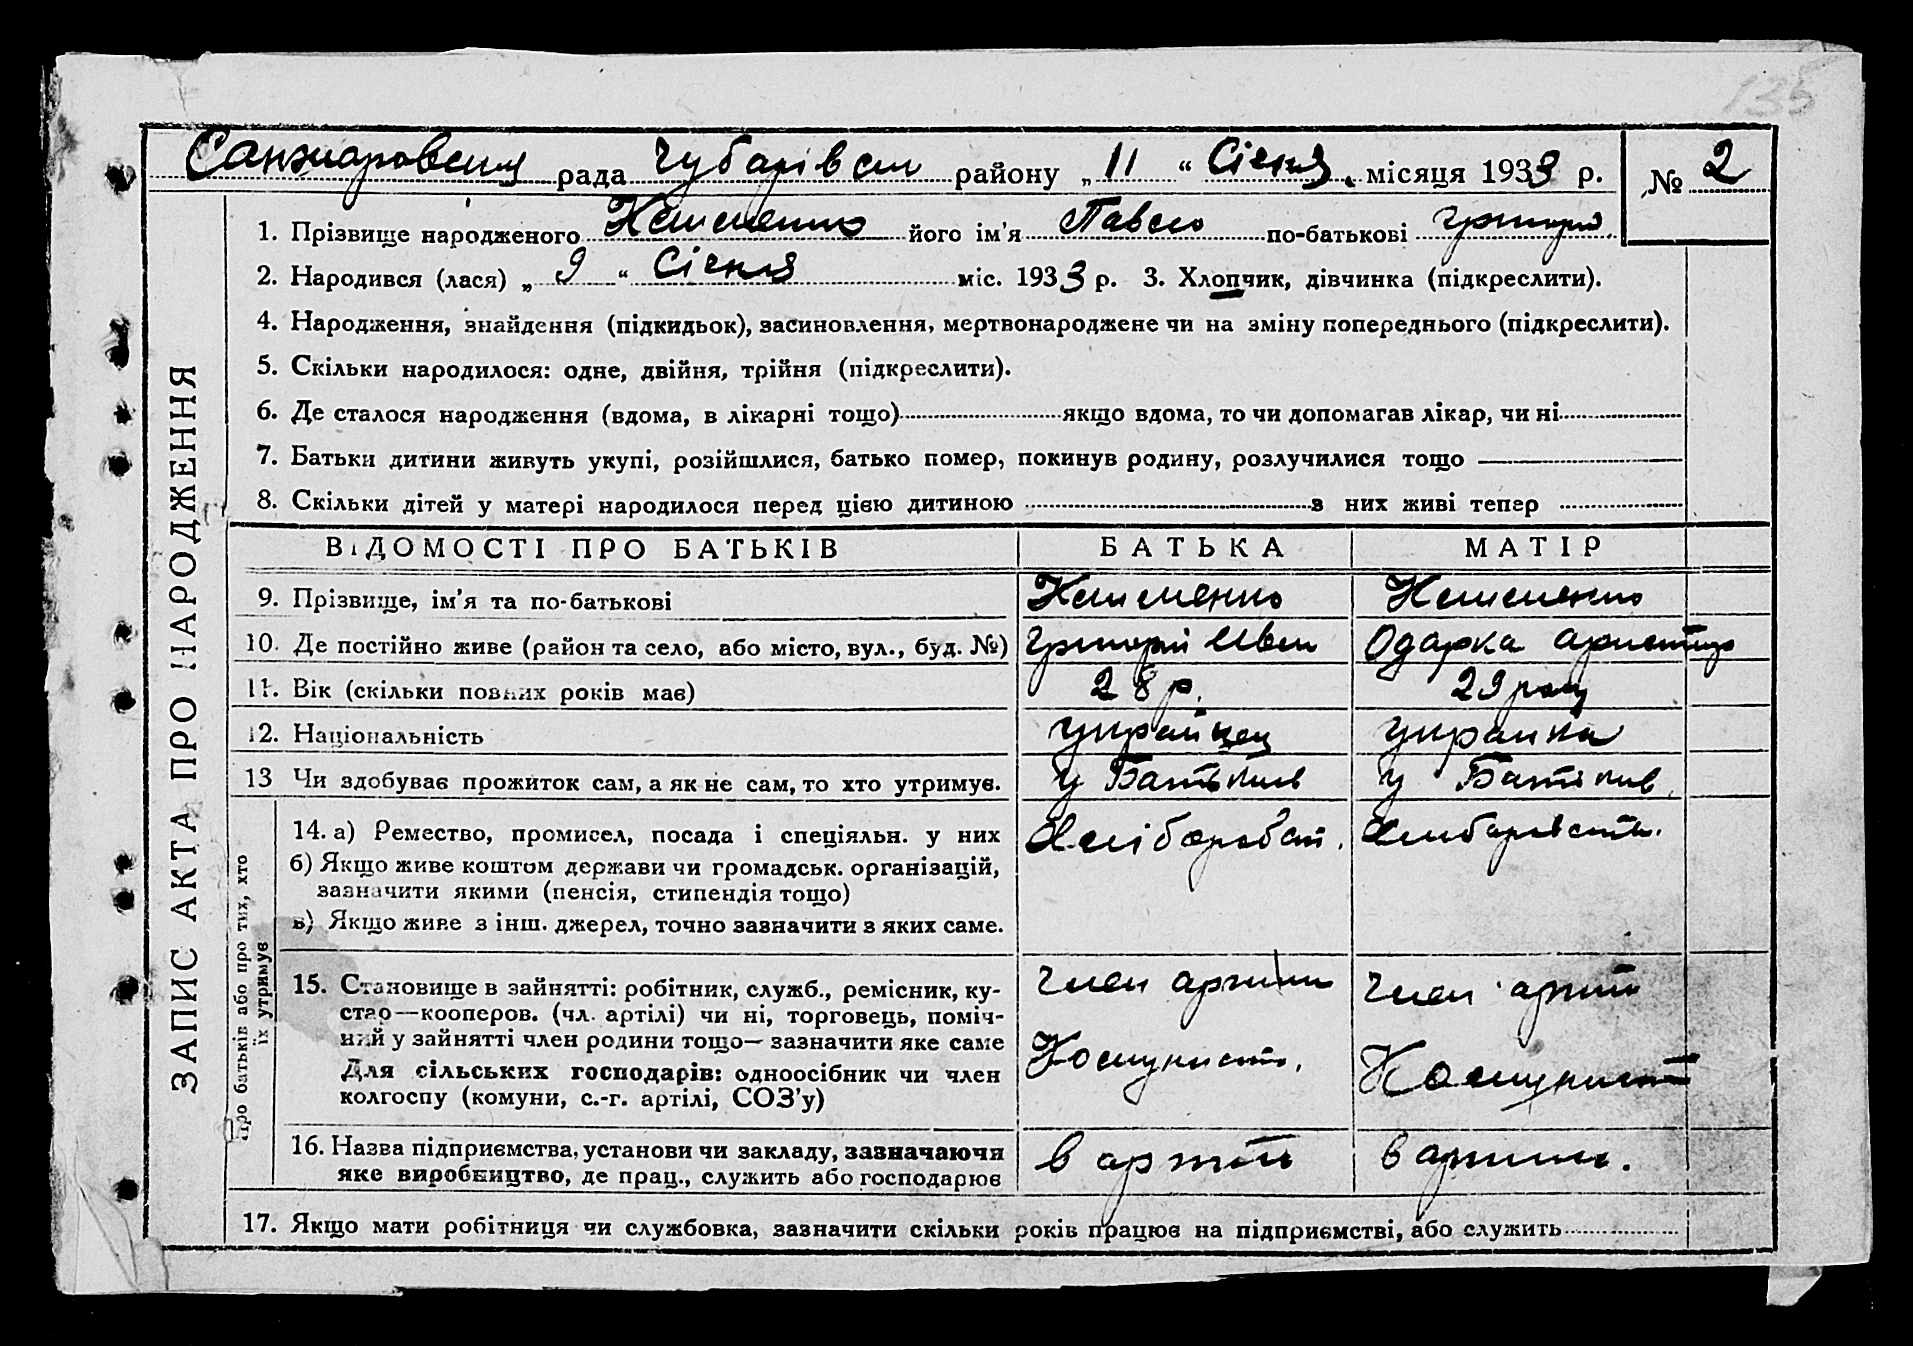 135
Санжаровська рада Чубарівськ району „ 11 “ Січня місяця 1933 р. № 2
1. Прізвище народженого Клименко його ім’я Павло по-батькові Григоро
2. Народився (лася) „ 9 “ Січня міс. 1933 р. 3. Хлопчик, дівчинка (підкреслити).
4. Народження, знайдення (підкидьок), засиновлення, мертвонароджене чи на зміну попереднього (підкреслити).
5. Скільки народилося: одне, двійня, трійня (підкреслити).
6. Де сталося народження (вдома, в лікарні тощо) якщо вдома, то чи допомагав лікар, чи ні
7. Батьки дитини живуть укупі, розійшлися, батько помер, покинув родину, розлучилися тощо
8. Скільки дітей у матері народилося перед цією дитиною з них живі тепер
ЗАПИС АКТА ПРО НАРОДЖЕННЯ
ВІДОМОСТІ ПРО БАТЬКІВ БАТЬКА МАТІР
9. Прізвище, ім’я та по-батькові Клименко Клименко
10. Де постійно живе (район та село, або місто, вул., буд. №) Григорій Іван Одарка
11. Вік (скільки повних років має) 28 р. 29 року
12. Національність українец українка
13 Чи здобуває прожиток сам, а як не сам, то хто утримує. у Батьків у Батьків
Про батьків або про тих, хто
їх утримує
14. а) Ремество, промисел, посада і спеціяльн. у них Хліборобст. Хлиборобств.
б) Якщо живе коштом держави чи громадськ. організацій,
зазначити якими (пенсія, стипендія тощо)
в) Якщо живе з інш. джерел, точно зазначити з яких саме.
15. Становище в зайнятті: робітник, служб., ремісник, ку- член артили член артил
стар—кооперов. (чл. артілі) чи ні, торговець, поміч-
ний у зайнятті член родини тощо— зазначити яке саме
Для сільських господарів: одноосібник чи член Комунист. Комунист
колгоспу (комуни, с.-г. артілі, СОЗ’у)
16. Назва підприємства, установи чи закладу, зазначаючи в артили в артили.
яке виробництво, де прац., служить або господарює
17. Якщо мати робітниця чи службовка, зазначити скільки років працює на підприємстві, або служить